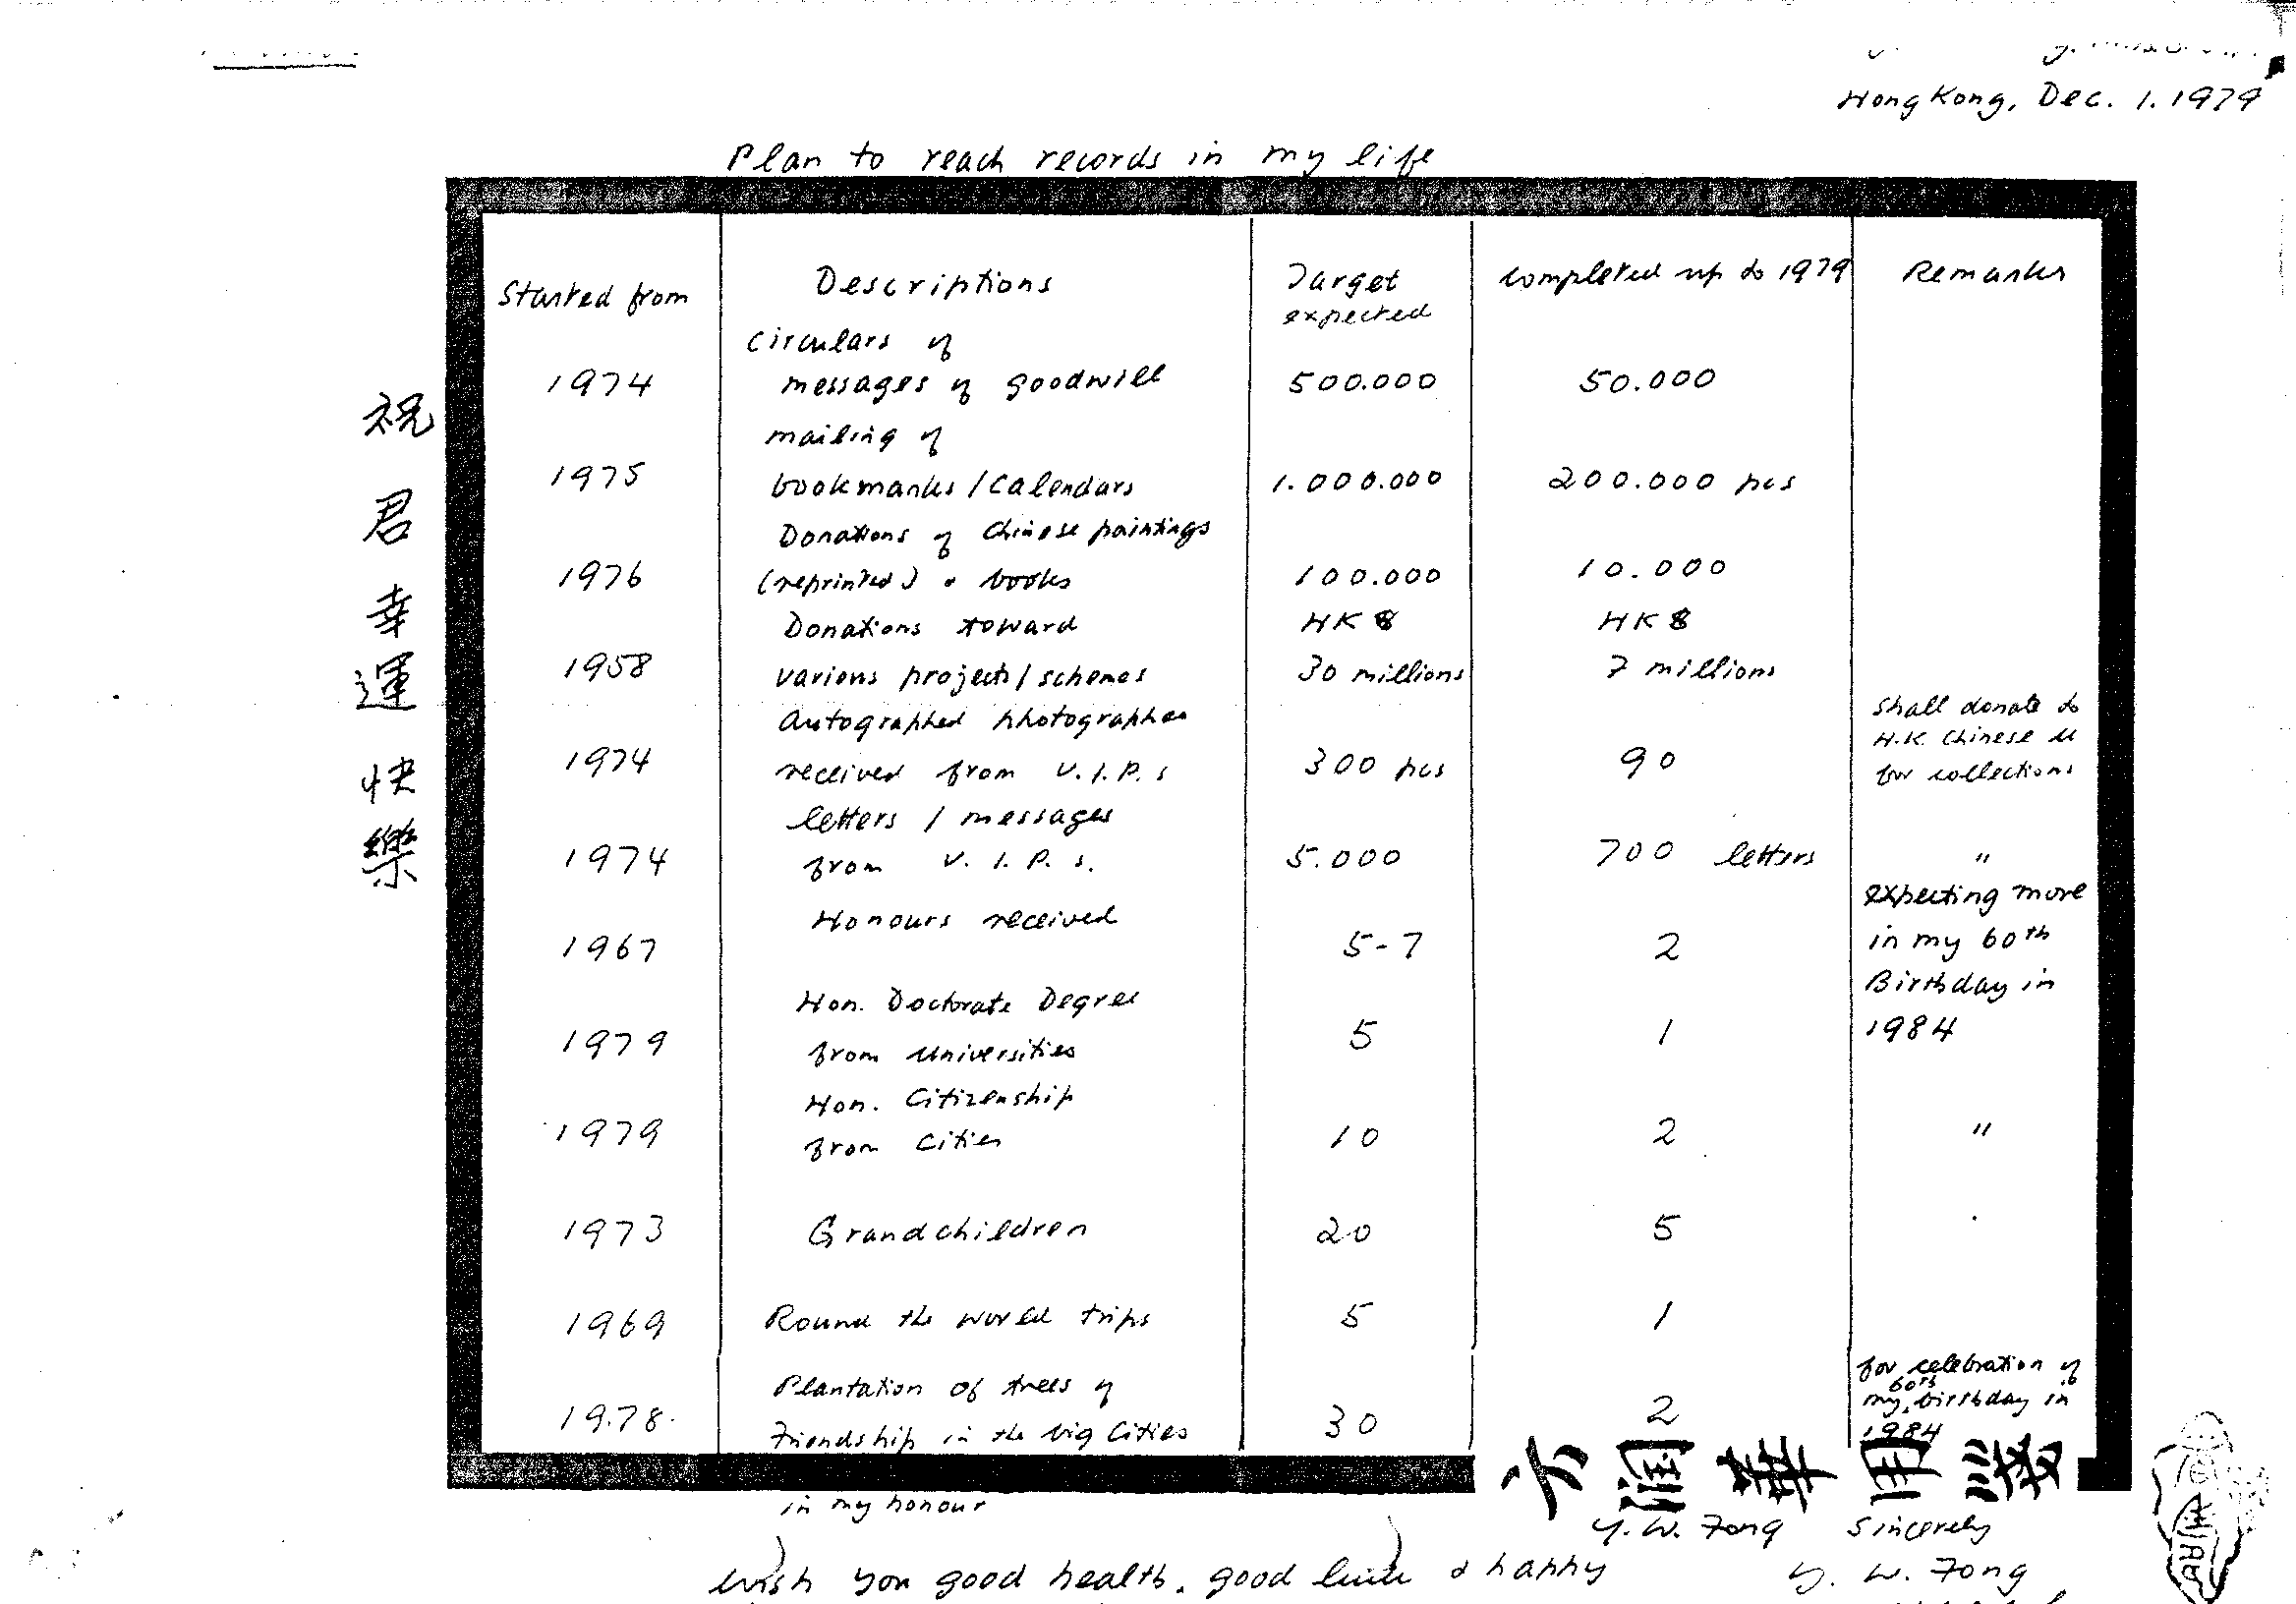 Hong Kong, Dec. 1. 1979
Plan to reach records in my life
Started from Descriptions Target expected completed up to 1979 Remarks
circulars of
1974 messages of goodwill 500.000 50.000
mailing of
1975 bookmarks / calendars 1.000.000 200.000 pcs
Donations of Chinese paintings
1976 (reprinted) & books 100.000 10.000
Donations toward HK$ HK$
1958 various projects / schemes 30 millions 7 millions
autographed photographes shall donate to
1974 received from V.I.P.s 300 pcs 90 H.K. Chinese U for collections
letters / messages
1974 from V.I.P.s. 5.000 700 letters "
Honours received expecting more
1967 5-7 2 in my 60th
Hon. Doctorate Degree Birthday in
1979 from universities 5 1 1984
Hon. Citizenship
1979 from Cities 10 2 "
1973 Grandchildren 20 5
1969 Round the world trips 5 1
Plantation of trees of for celebration of
1978 Friendship in the big Cities 30 2 my 60th birthday in 1984
in my honour
Y. W. Fong Sincerely
wish you good health, good luck & happy Y. W. Fong
祝君幸運快樂